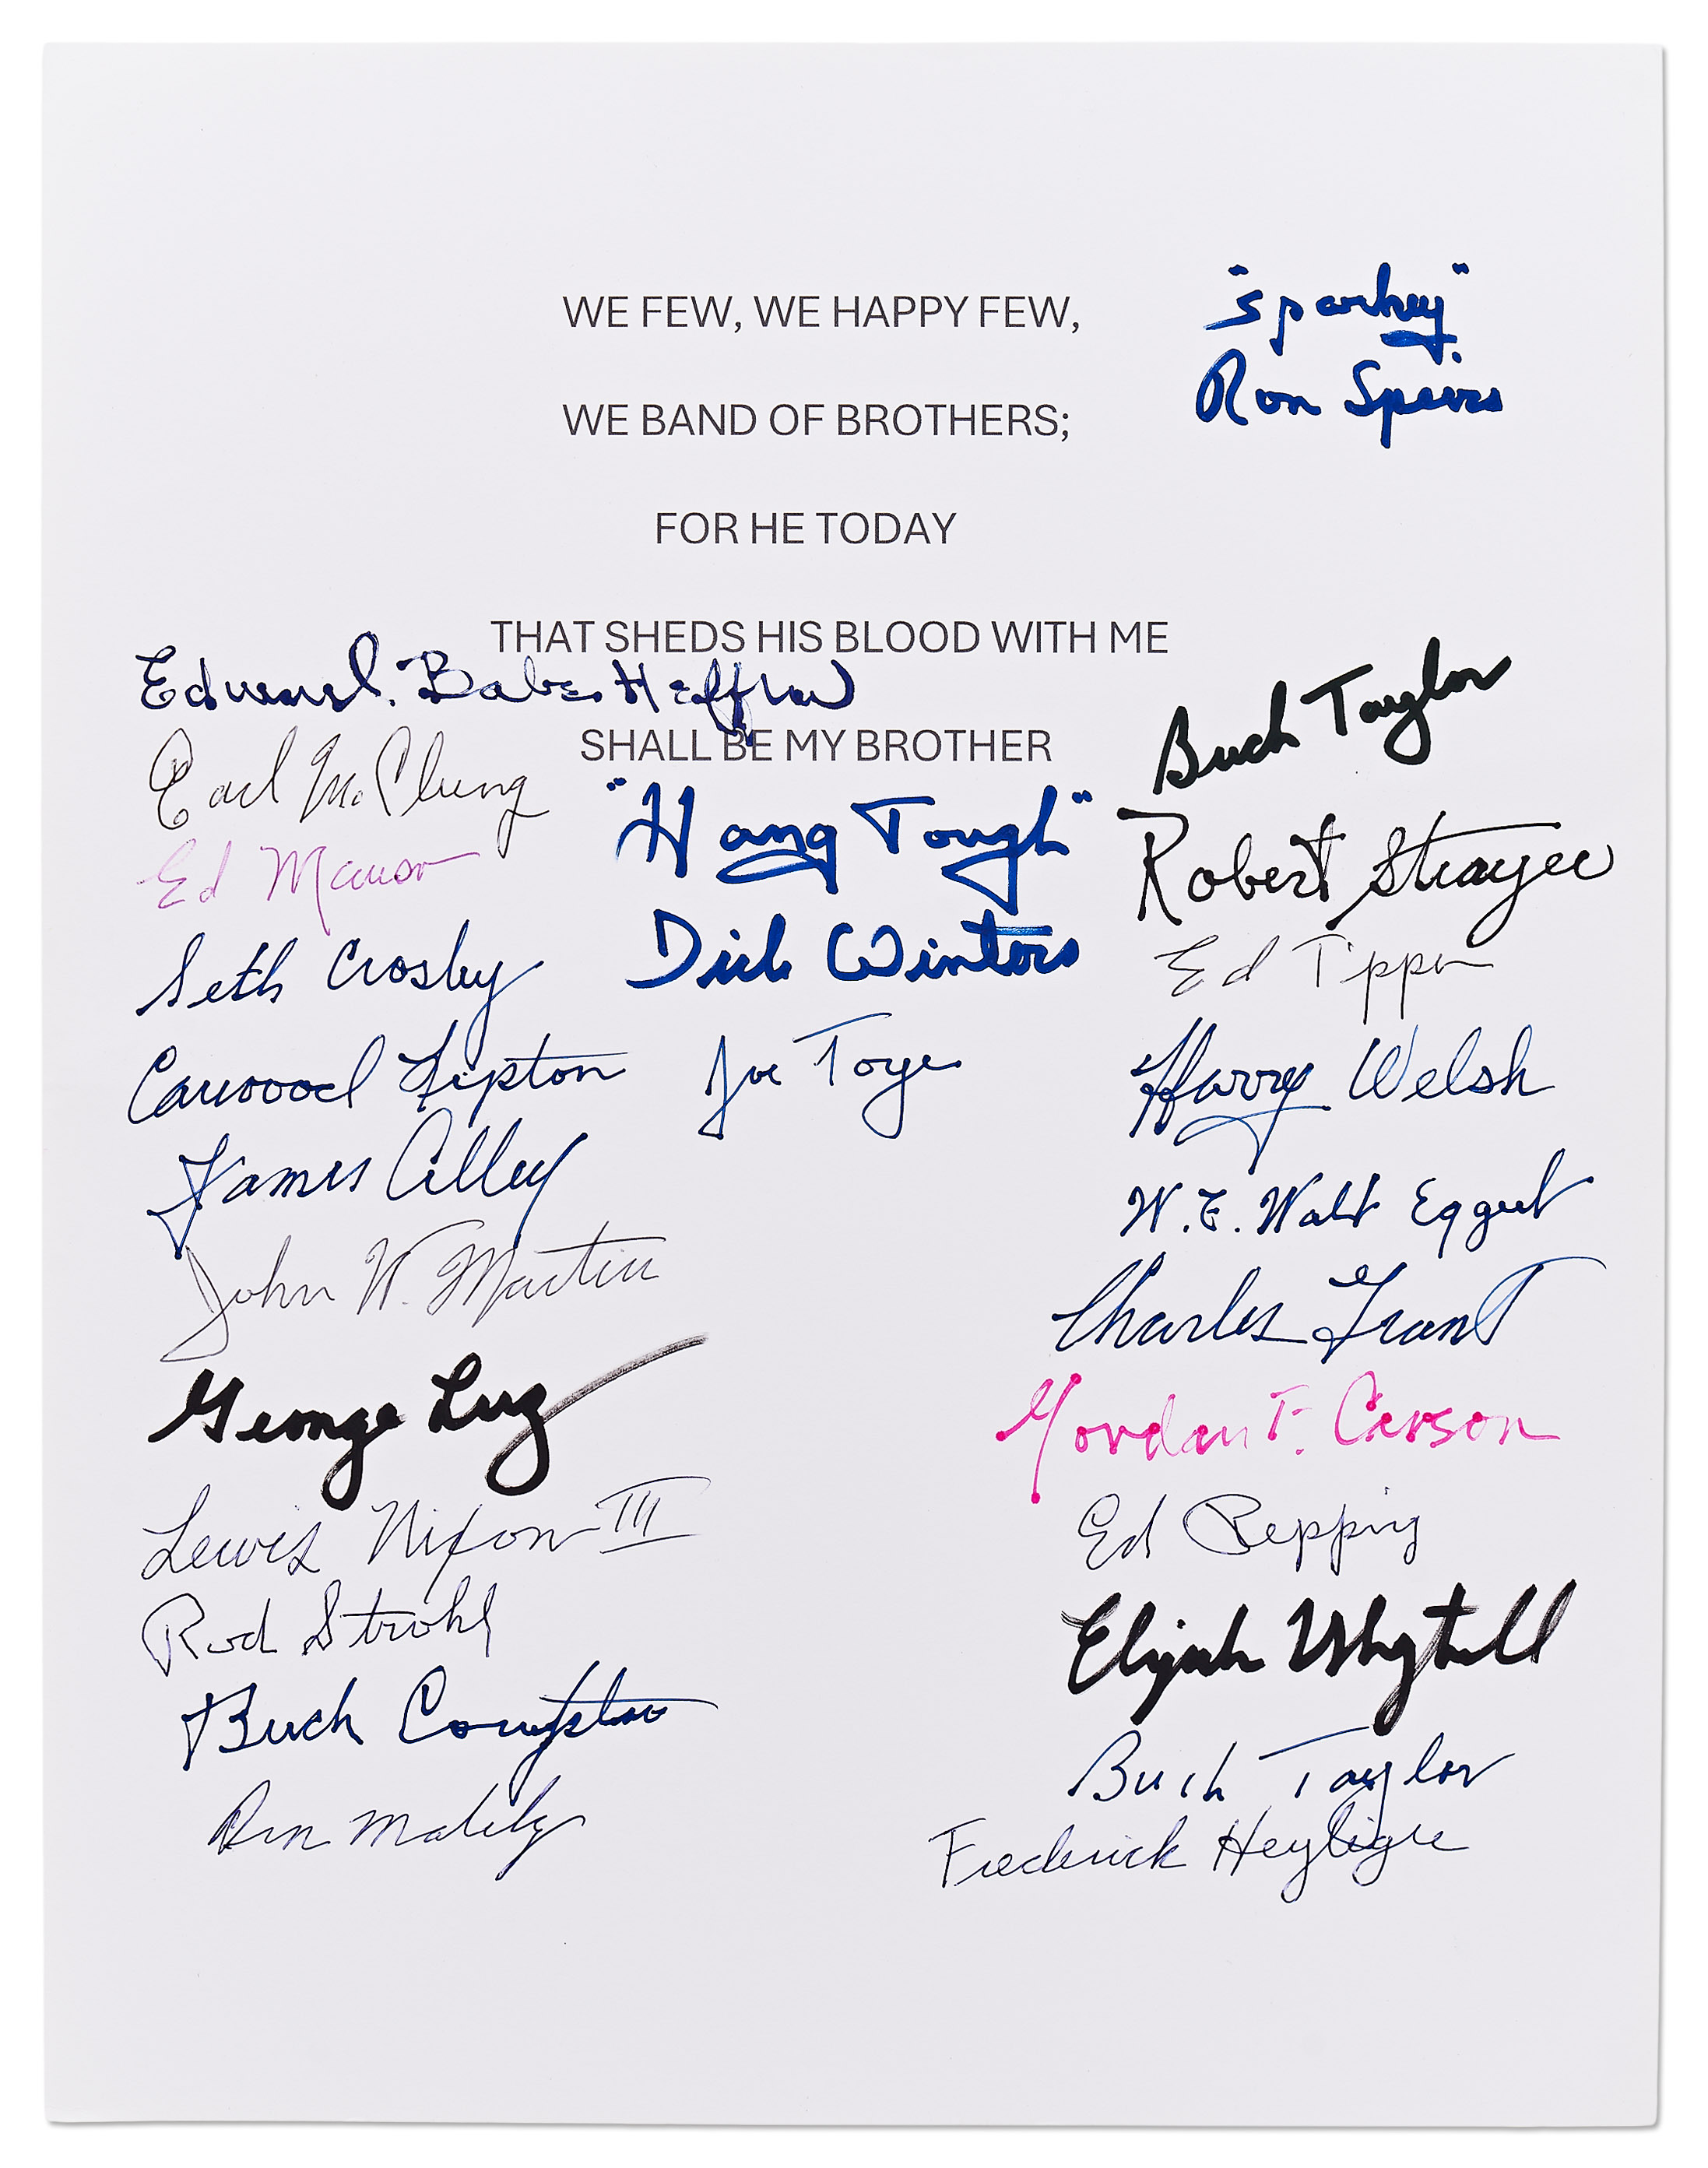 WE FEW, WE HAPPY FEW,
"Sparkey"
Ron Speirs
WE BAND OF BROTHERS;
FOR HE TODAY
THAT SHEDS HIS BLOOD WITH ME
Edward. Babe. Heffron
Buck Taylor
SHALL BE MY BROTHER
Earl McClung
"Hang Tough"
Robert Strayer
Ed
Dick Winters
Ed Tipper
Seth Crosby
Carwood Lipton
Joe Toye
Harry Welsh
James Alley
W. E. Walt Eggert
John W. Martin
Charles Grant
George Luz
Gordon F. Carson
Lewis Nixon III
Ed Pepping
Rod Strohl
Elijah Whytsell
Buck Compton
Buck Taylor
Don Malarkey
Frederick Heyliger